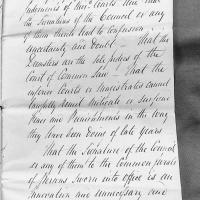 Judgments of this Courts and that
the Signature of the Council or any
of them thereto had to Confusion
uncertainty and doubt — That the
Deemsters are the sole Judges of the
Court of Common Law — That the
inferior Courts or Magistrates cannot
lawfully remit Mitigate or Suspend
Fines and Punishments in the way
they have been doing of late years
That the Signature of the Council
or any of them to the Common
of Persons Sworn into office is an
Innovation and unnecessary and